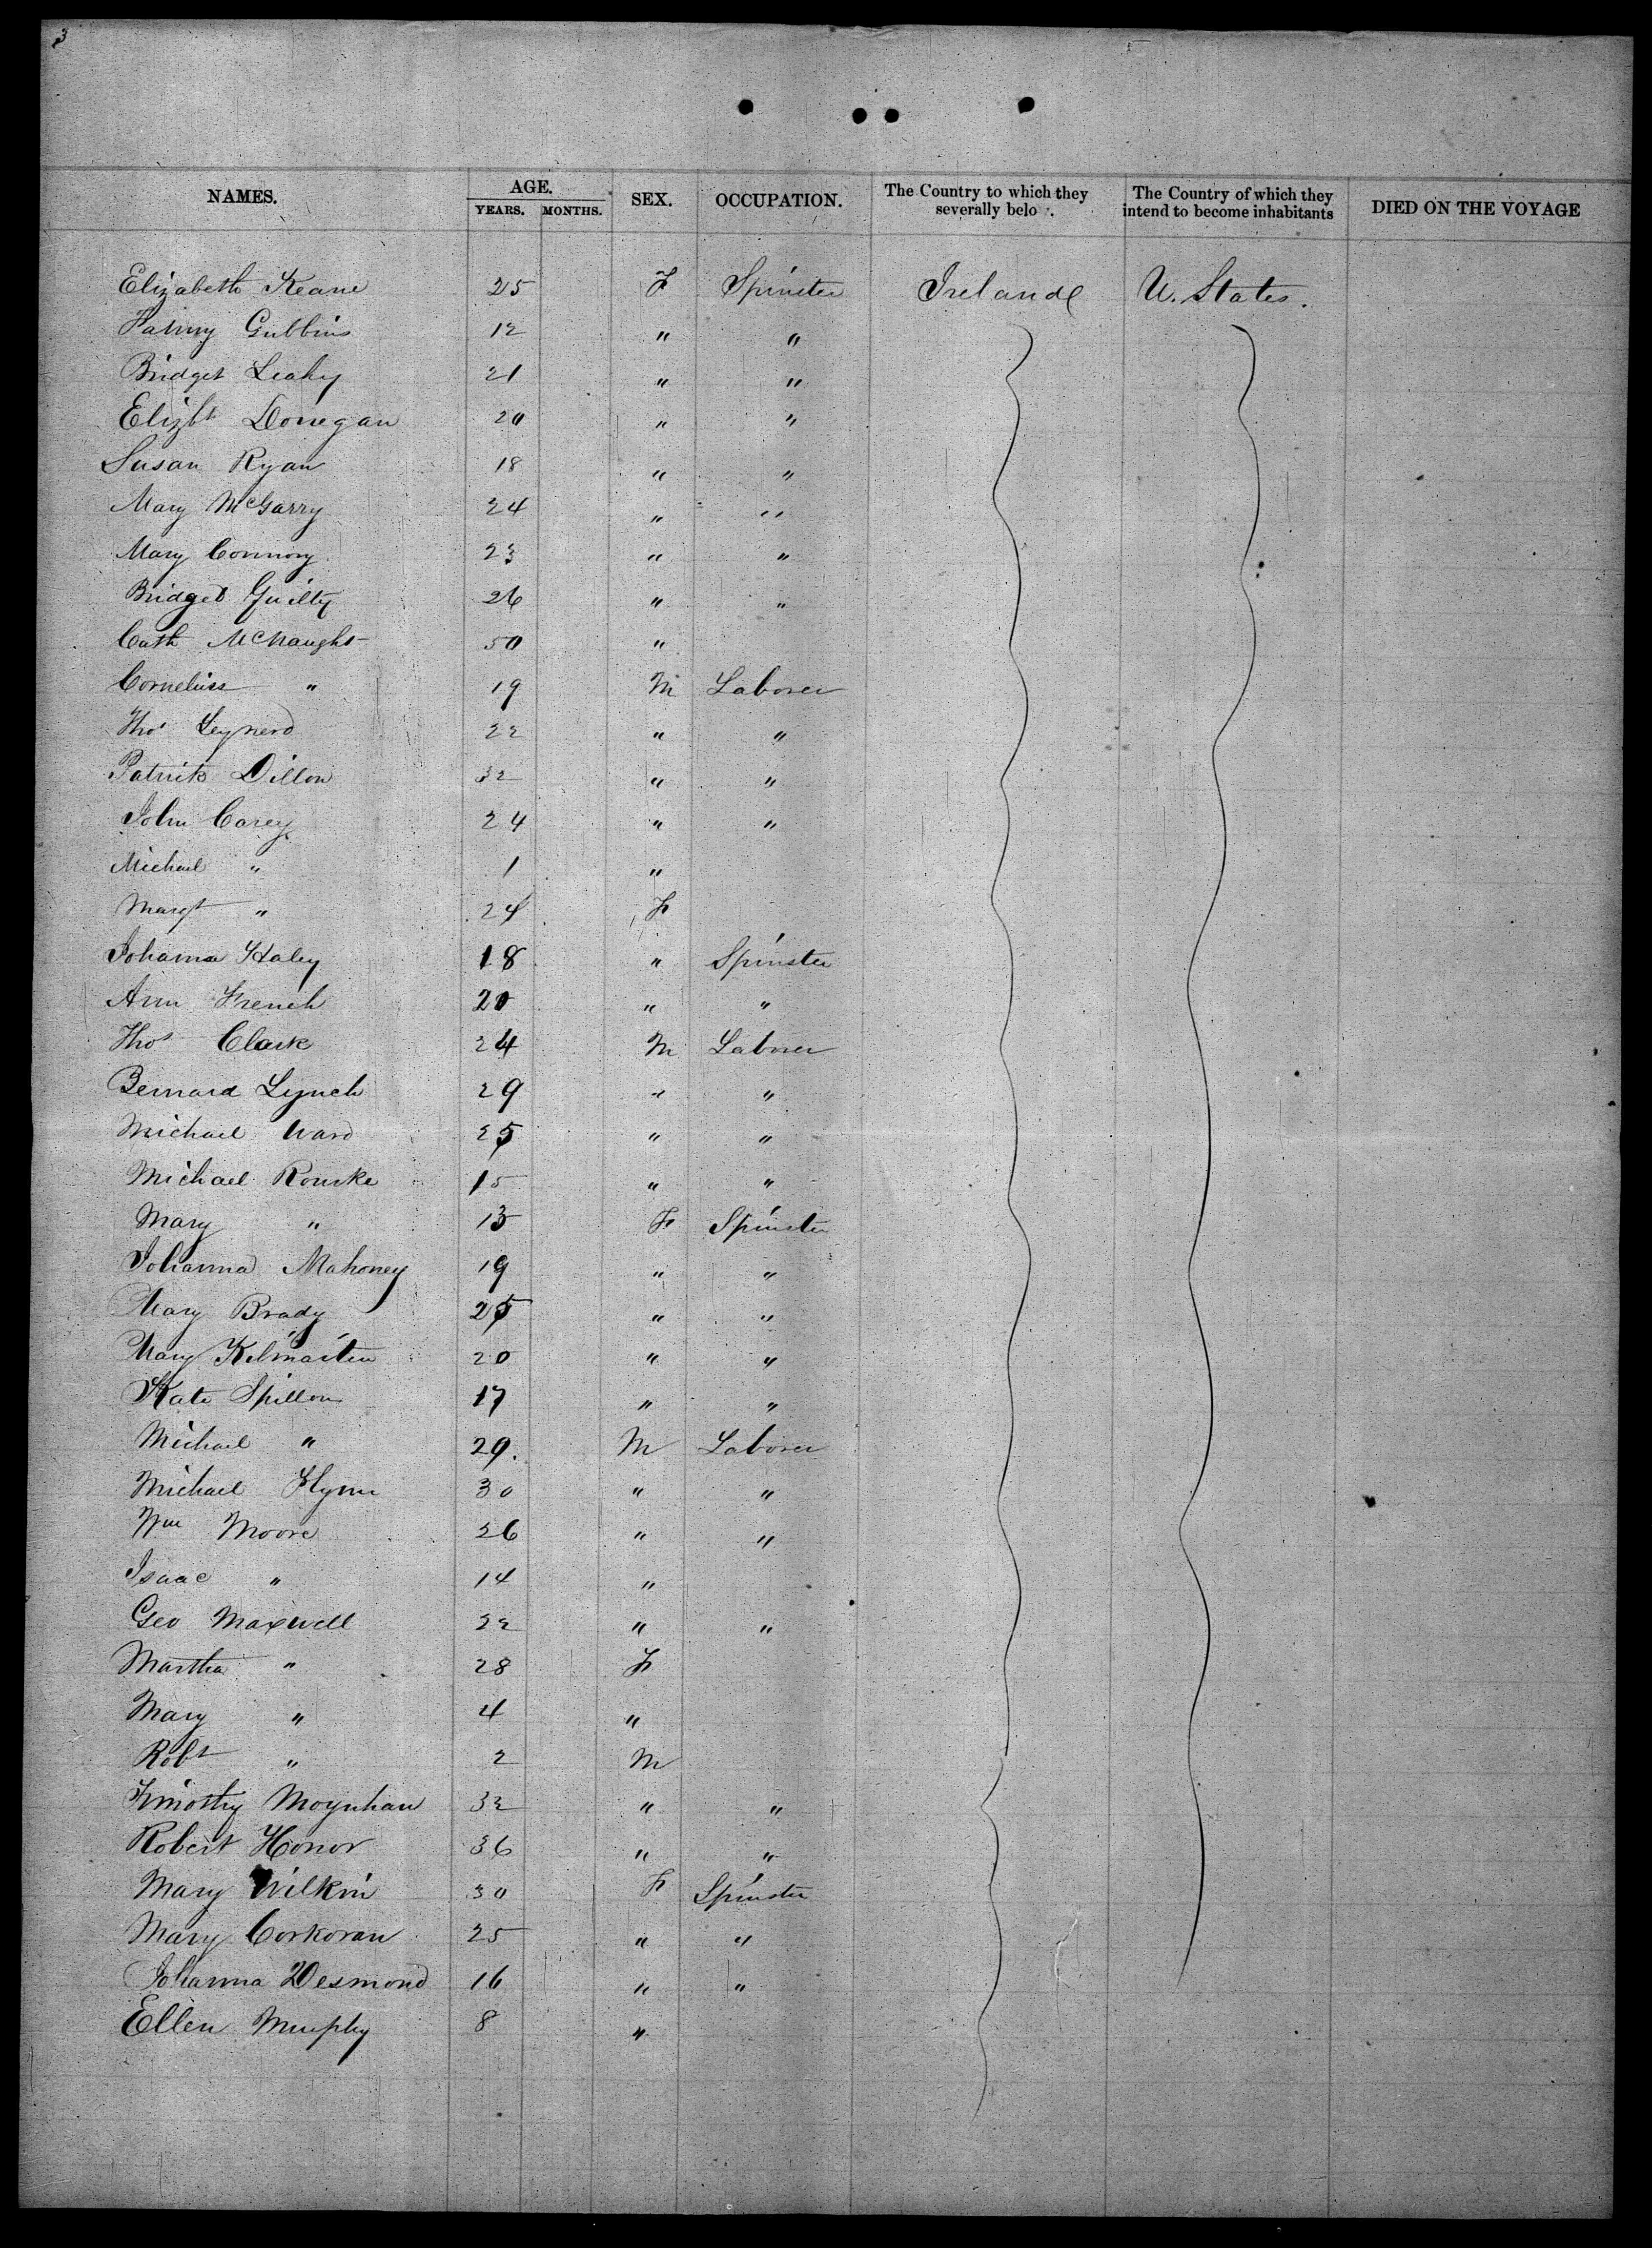 3
NAMES. AGE. SEX. OCCUPATION. The Country to which they severally belo . The Country of which they intend to become inhabitants DIED ON THE VOYAGE
YEARS. MONTHS.
Elizabeth Keane 25 F Spinster Ireland U. States.
Fanny Gubbins 12 " "
Bridget Leahy 21 " "
Elizbt Donegan 20 " "
Susan Ryan 18 " "
Mary McGarry 24 " "
Mary Connory 23 " "
Bridget Guilty 26 " "
Cath McNaught 50 "
Cornelius " 19 M Laborer
Thos Leynerd 22 " "
Patrick Dillon 32 " "
John Carey 24 " "
Michael " 1 "
Margt " 24 F
Johanna Haley 18 " Spinster
Ann French 20 " "
Thos Clark 24 M Laborer
Bernard Lynch 29 " "
Michael Ward 25 " "
Michael Rourke 15 " "
Mary " 13 F Spinster
Johanna Mahoney 19 " "
Mary Brady 25 " "
Mary Kilmartin 20 " "
Kate Spillon 17 " "
Michael " 29. M Laborer
Michael Flynn 30 " "
Wm Moore 26 " "
Isaac " 14 "
Geo Maxwell 22 " "
Martha " 28 F
Mary " 4 "
Robt " 2 M
Timothy Moynhan 32 " "
Robert Honor 36 " "
Mary Wilkin 30 F Spinster
Mary Corkoran 25 " "
Johanna Desmond 16 " "
Ellen Murphy 8 "